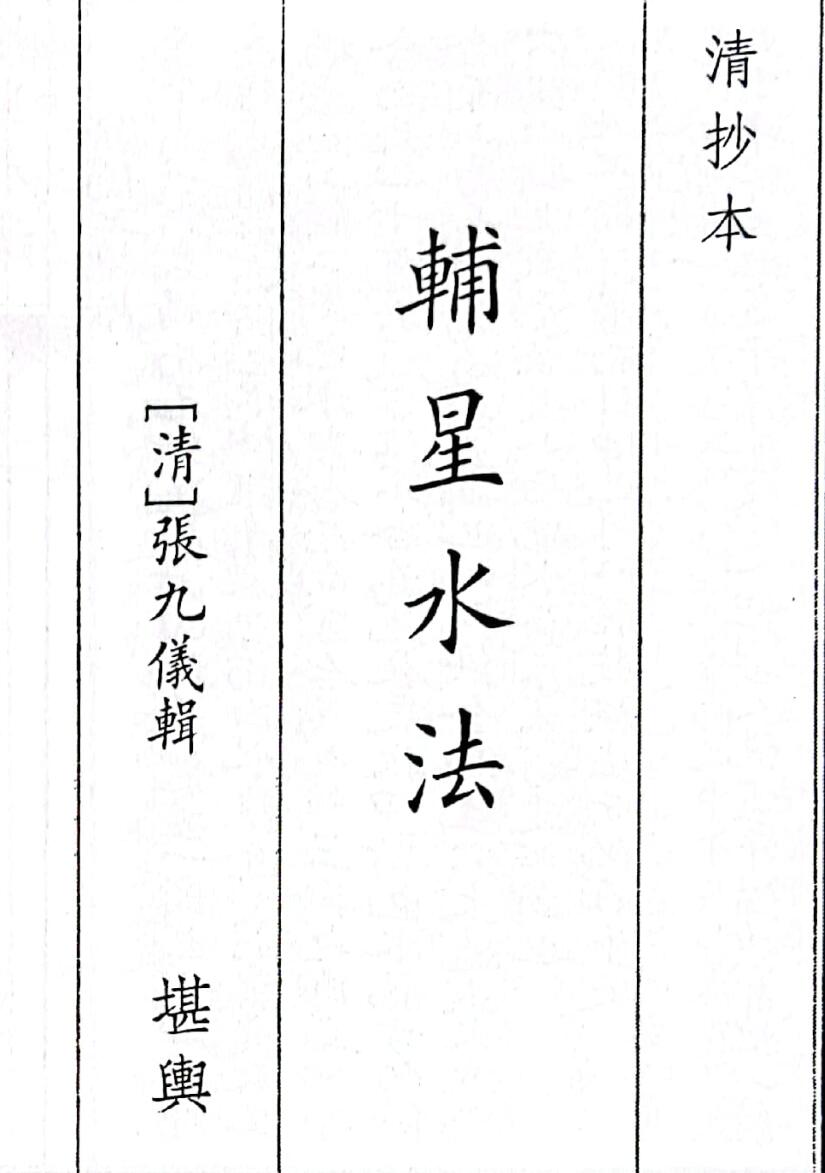 清抄本
輔星水法
［清］張九儀輯
堪輿